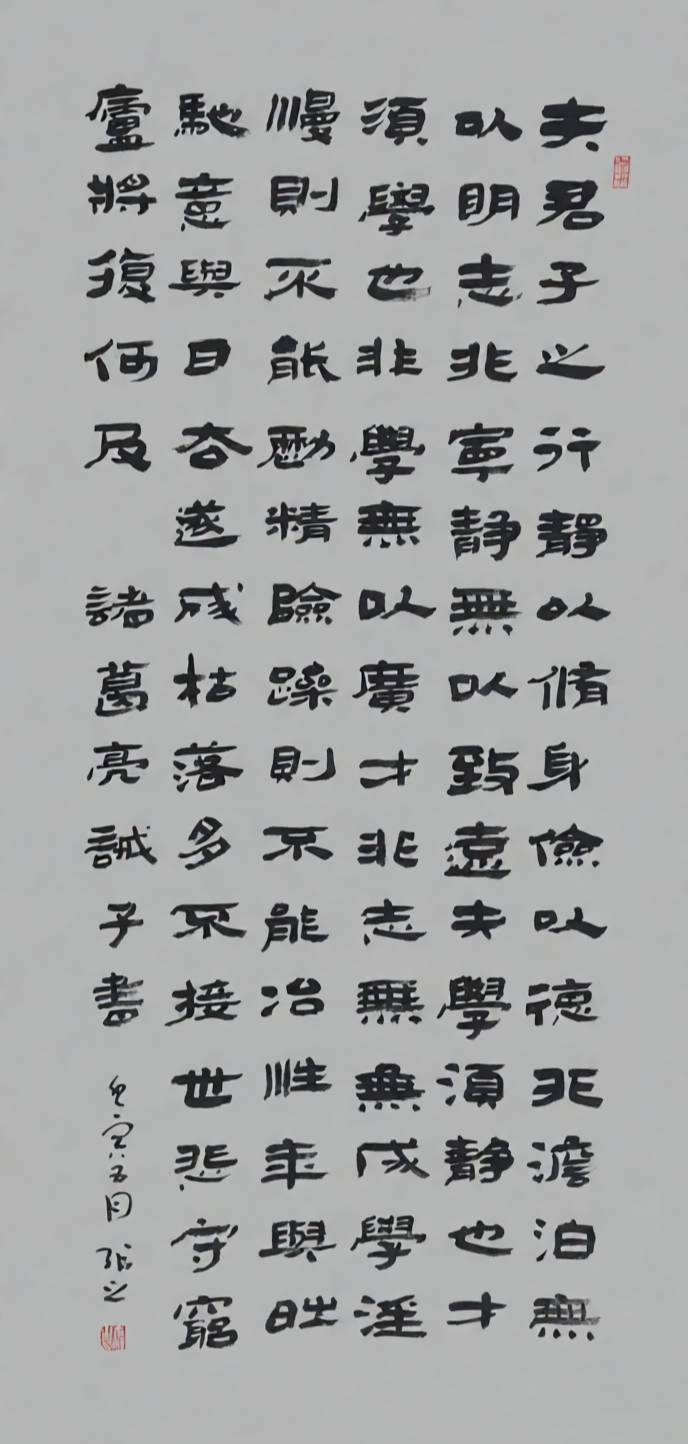 夫君子之行靜以脩身儉以德非澹泊無
以明志非寧静無以致遠夫學須静也才
須學也非學無以廣才非志無無成學淫
慢則不能勵精險躁則不能冶性年與時
馳意與日去遂成枯落多不接世悲守窮
廬將復何及 諸葛亮誡子書
寅五月 張之